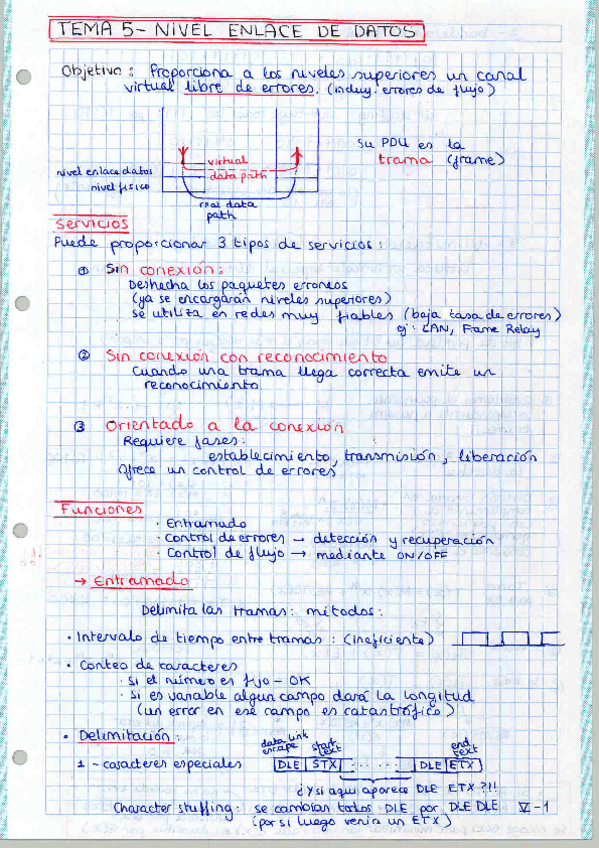 TEMA 5- NIVEL ENLACE DE DATOS
Objetivo: Proporciona a los niveles superiores un canal
virtual libre de errores. (incluy. errores de flujo)
Su PDU es la
trama (frame)
virtual
data path
nivel enlace datos
nivel físico
real data
path
Servicios
Puede proporcionar 3 tipos de servicios:
① Sin conexión:
Deshecha los paquetes erroneos
(ya se encargarán niveles superiores)
se utiliza en redes muy fiables (baja tasa de errores)
ej: LAN, Frame Relay
② Sin conexión con reconocimiento
Cuando una trama llega correcta emite un
reconocimiento
③ Orientado a la conexión
Requiere fases:
establecimiento, transmisión, liberación
Ofrece un control de errores
Funciones
· Entramado
· Control de errores → detección y recuperación
· Control de flujo → mediante ON/OFF
→ Entramado
Delimita las tramas: métodos:
· Intervalo de tiempo entre tramas: (ineficiente)
· Conteo de caracteres
· si el número es fijo - OK
· si es variable algun campo dará la longitud
(un error en ese campo es catastrófico)
· Delimitación:
data link
escape
start
text
end
text
1 - caracteres especiales DLE STX ..... DLE ETX
¿Y si aqui aparece DLE ETX ?!!
Character stuffing: se cambian todos DLE por DLE DLE V-1
(por si luego venía un ETX)